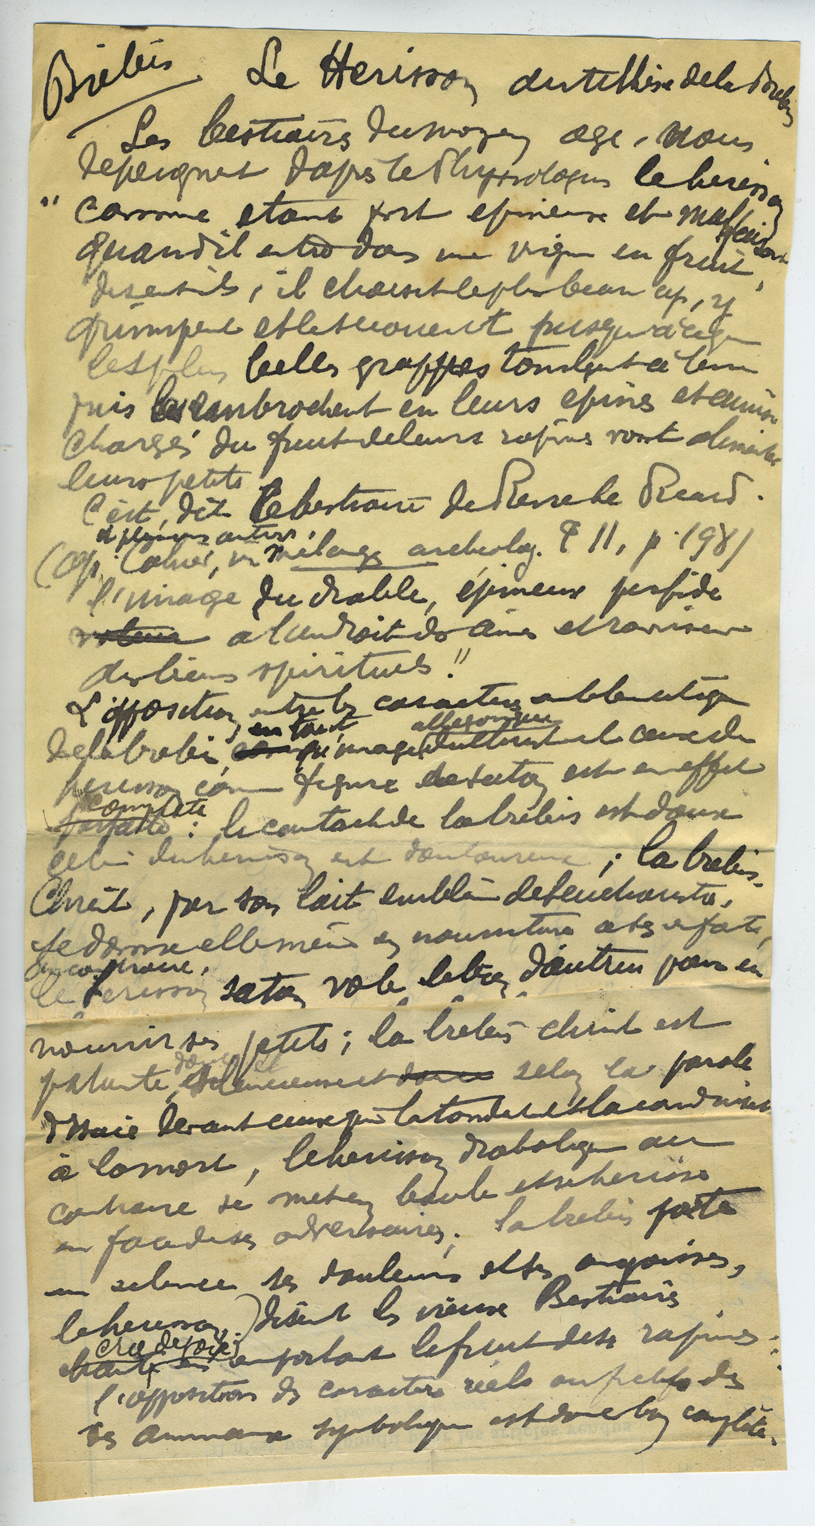 Brebis Le Herisson antithèse de la Brebis
Les bestiaires du moyen age, nous
depeignent d'apres le Physiologus le herisson
" comme etant fort epineux et malfaisant
quand il entre dans une vigne en fruit,
disent-ils, il choisit le plus beau cep, y
grimpent et le secouent jusqu'à ce que
les plus belles grappes tombent à terre
puis les embrochent en leurs epines et ainsi
chargés du fruit de leurs rapines vont alimenter
leurs petits
C'est, dit le bestiaire de Pierre le Picard.
et plusieurs autres
(Cf. Cahier, in mélanges archeolog. T II, p. 198)
l'image du diable, épineux perfide
voleur a l'endroit des âmes et ravisseur
des biens spirituels."
L'opposition entre les caracteres emblematiques
en tant allegorique
de la brebis qu'image du Christ et ceux du
herisson comme figure de satan est en effet
complete
parfaite : le contact de la brebis est doux
celui du herisson est douloureux ; la brebis-
Christ, par son lait emblème de l'eucharistie,
se donne elle meme en nourriture a ses enfants,
au contraire,
le herisson satan vole le bien d'autrui pour en
nourrir ses petits ; la brebis christ est
douce et
patiente, silencieuse selon la parole
d'Isaie devant ceux qui la tondent et la conduisent
à la mort, le herisson diabolique au
contraire se met en boule et se herisse
en face de ses adversaires ; la brebis porte
en silence ses douleurs et ses angoisses,
le herisson, disent les vieux Bestiaires
crie de joie
en emportant le fruit de ses rapines :
l'opposition des caracteres réels ou fictifs des
des animaux symboliques est donc bien complète.